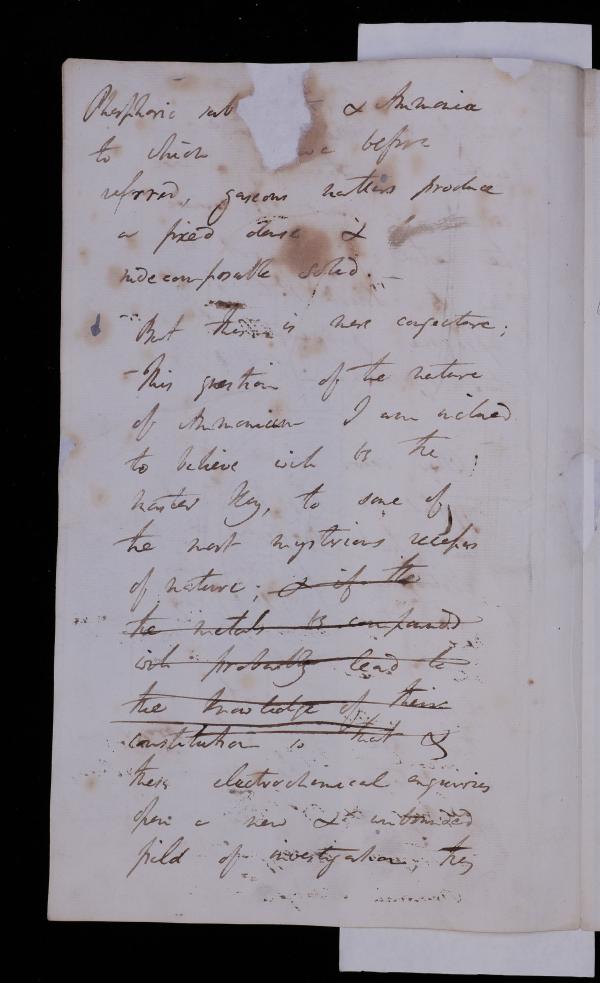 Phosphoric sub & Ammonia
to which before
referred, gaseous matters produce
a fixed dense &
indecomposable solid. –
But this is mere conjecture;
– This question of the nature
of Ammonium I am inclined
to believe will be the
master Key, to some of
the most mysterious recesses
of nature; & if the
the metals be compounded
will probably lead to
the knowledge of their
constitution so that &
these electrochemical enquiries
open a new & unbounded
field of investigation, they